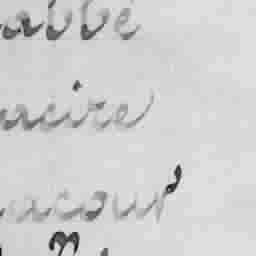 abbé
acire
acour